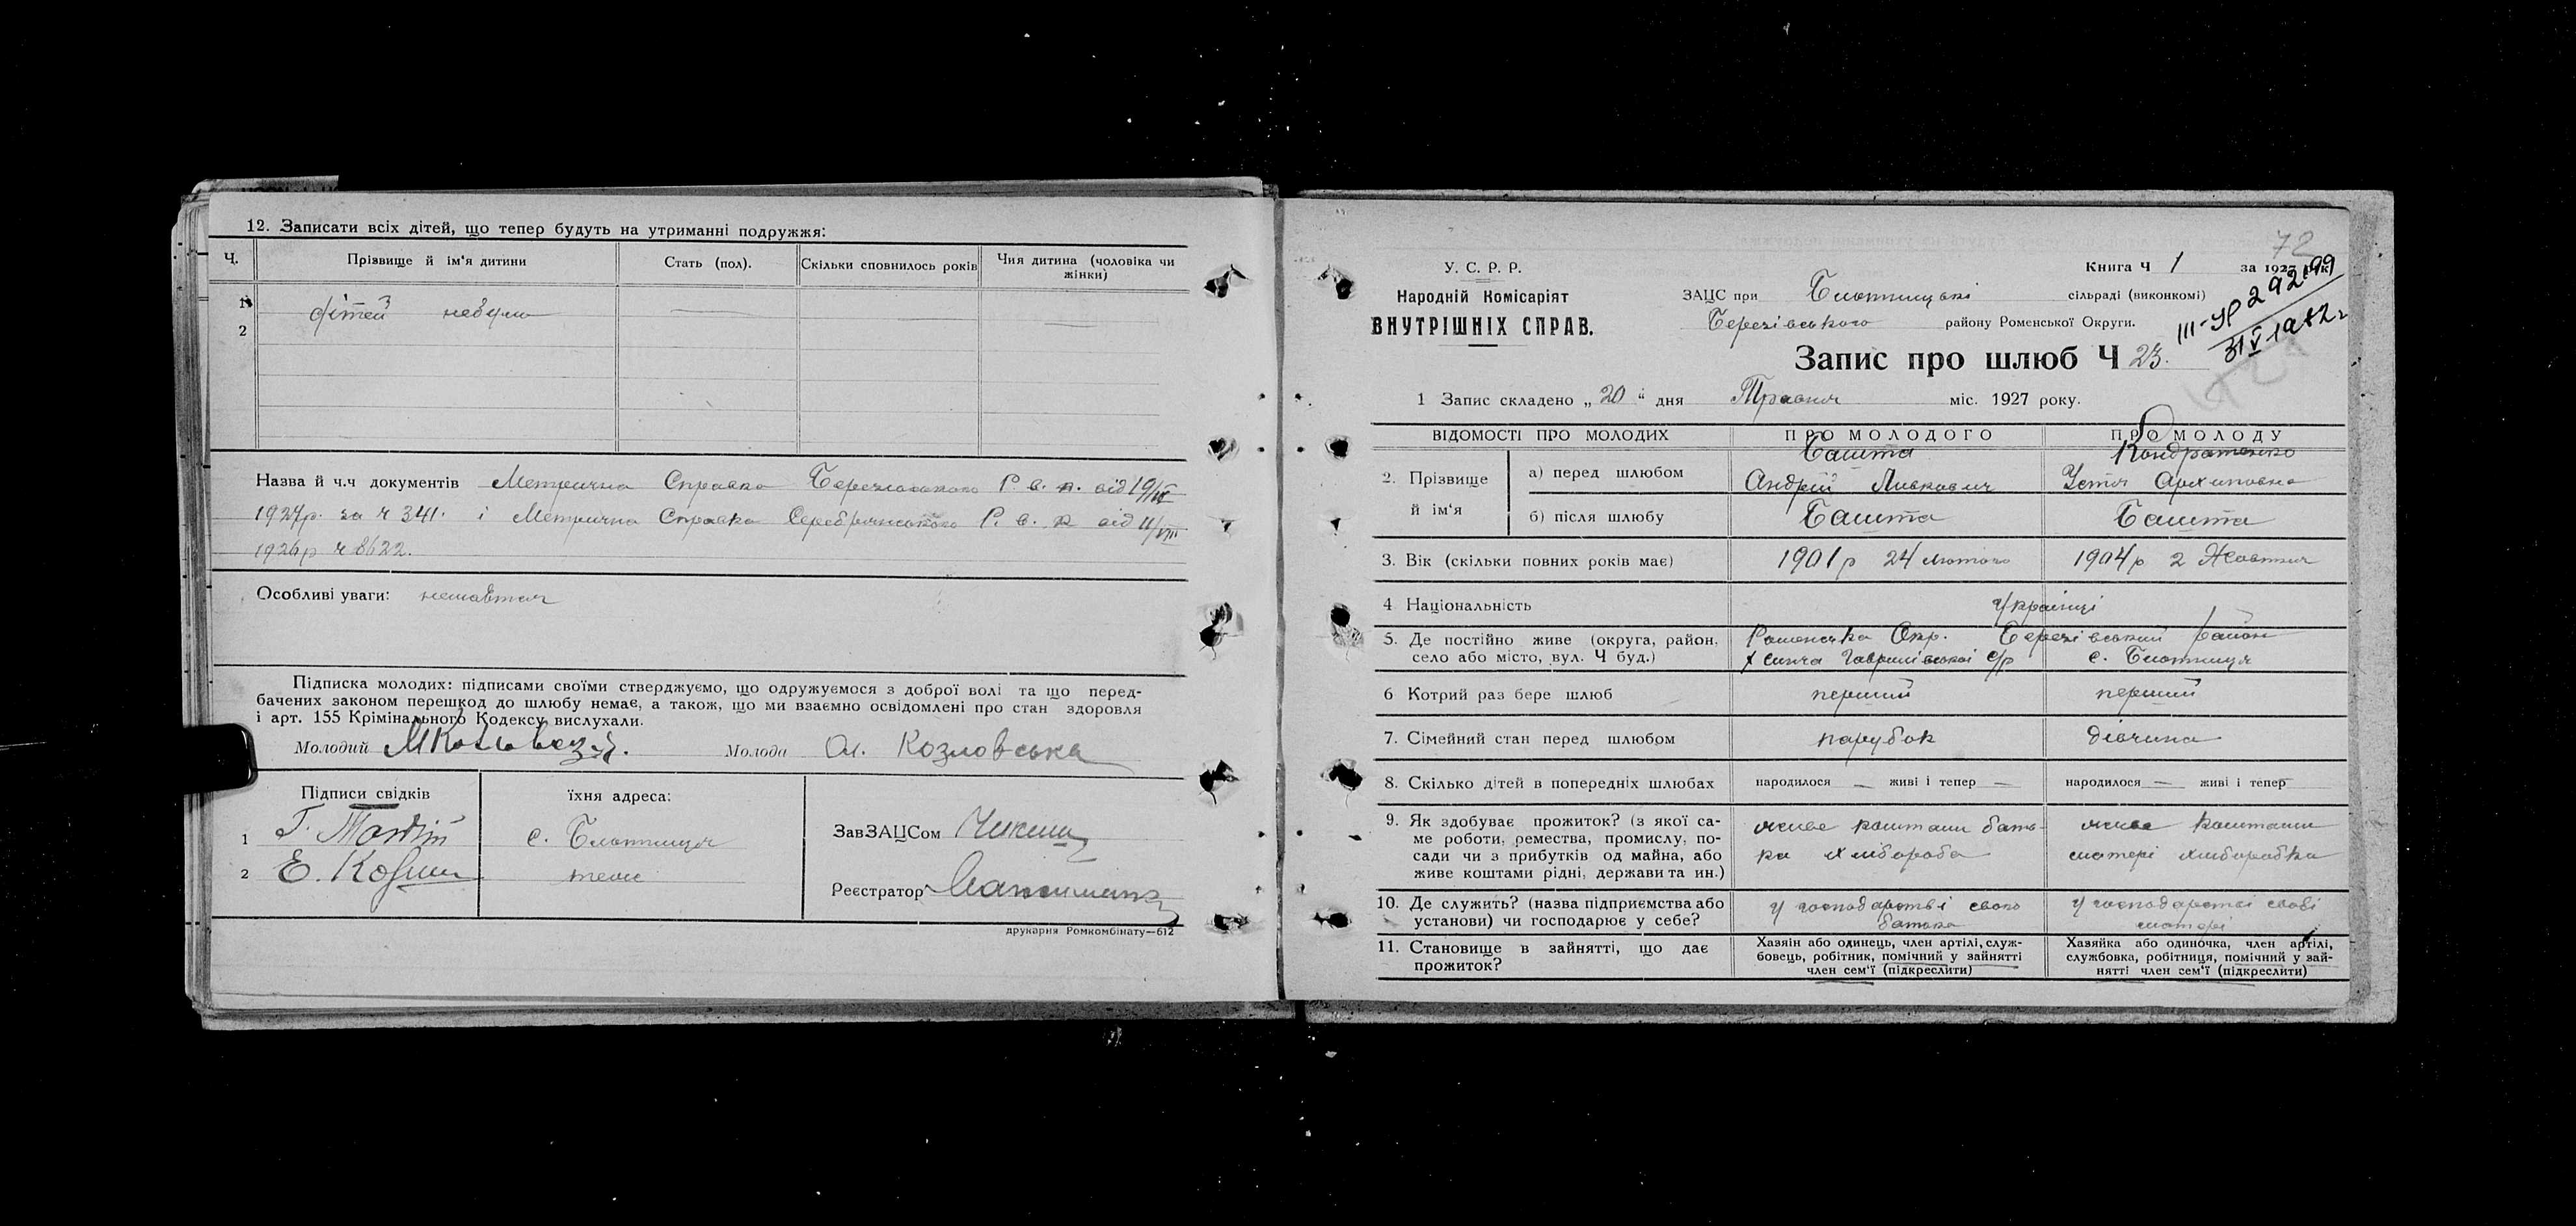 12. Записати всіх дітей, що тепер будуть на утриманні подружжя:
Ч. Прізвище й ім'я дитини Стать (пол). Скільки сповнилось років Чия дитина (чоловіка чи жінки)
1 дітей небуло — — —
2
Назва й ч.ч документів Метрична Справка Березовського Р. в. к. від 19/
1927р. за ч 341. і Метрична Справка Серебрянського Р. в. к від 11/VIII
1926р ч 8622.
Особливі уваги:
Підписка молодих: підписами своїми стверджуємо, що одружуємося з доброї волі та що перед-
бачених законом перешкод до шлюбу немає, а також, що ми взаємно освідомлені про стан здоровля
і арт. 155 Крімінального Кодексу вислухали.
Молодий Молода Ол. Козловська
Підписи свідків їхня адреса:
1 Г. с. Блотниця
2 Е. теж
ЗавЗАЦСом
Реєстратор
друкарня Ромкомбінату—612
72
У. С. Р. Р.
Народній Комісаріят
ВНУТРІШНІХ СПРАВ.
Книга Ч 1 за 1927 рік
ЗАЦС при Блотницькі сільраді (виконкомі)
Березівського району Роменської Округи.
III-УР 292199
31 V 1982г
Запис про шлюб Ч 23.
1 Запис складено „ 20 " дня Травня міс. 1927 року.
ВІДОМОСТІ ПРО МОЛОДИХ ПРО МОЛОДОГО ПРО МОЛОДУ
2. Прізвище й ім'я а) перед шлюбом Башта Андрій Левкович Кондратенко Устя Архиповна
б) після шлюбу Башта Башта
3. Вік (скільки повних років має) 1901р 24 лютого 1904р 2 Жовтня
4 Національність Українці
5. Де постійно живе (округа, район, Роменська Окр. Березівський район
село або місто, вул. Ч буд.) с/р с. Блотниця
6 Котрий раз бере шлюб перший перший
7. Сімейний стан перед шлюбом парубок дівчина
8. Скілько дітей в попередніх шлюбах народилося — живі і тепер — народилося — живі і тепер
9. Як здобуває прожиток? (з якої са- живе коштами бать- живе коштами
ме роботи, ремества, промислу, по- ка хлібороба матері хліборобка
сади чи з прибутків од майна, або
живе коштами рідні, держави та ин.)
10. Де служить? (назва підприємства або у господарстві свого у господарстві своєї
установи) чи господарює у себе? батька матері
11. Становище в зайнятті, що дає Хазяїн або одинець, член артілі, служ- Хазяйка або одиночка, член артілі,
прожиток? бовець, робітник, помічний у зайнятті службовка, робітниця, помічний у зай-
член сем'ї (підкреслити) нятті член сем'ї (підкреслити)